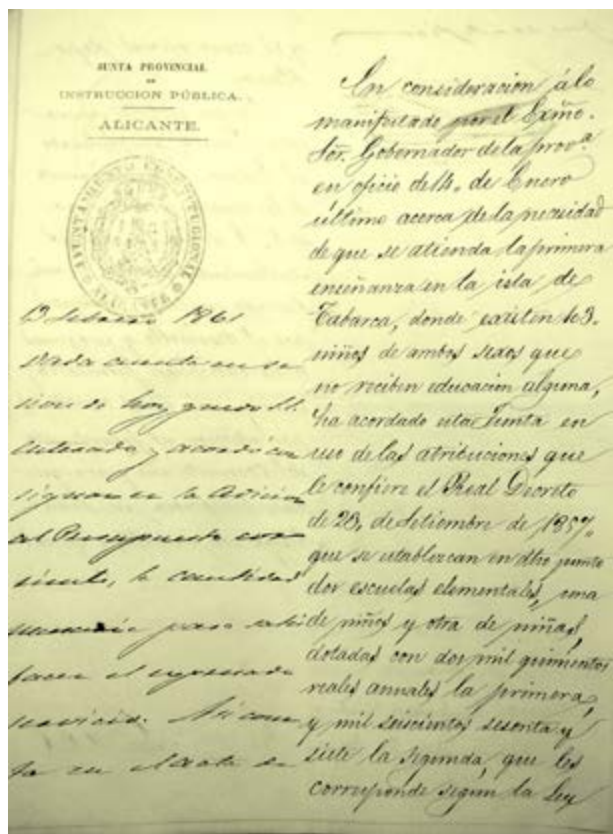 JUNTA PROVINCIAL
DE
INSTRUCCION PÚBLICA.
ALICANTE.
AYUNTAMIENTO CONSTITUCIONAL
ALICANTE
13 febrero 1861
Dada cuenta en se
sion de hoy, quedó S.E.
enterado y acordó con
signar en la Adicion
al Presupuesto cor
riente, la cantidad
necesaria para satis
facer el expresado
servicio.
En consideracion á lo
manifestado por el Exmo.
Sor. Gobernador de la prova
en oficio de 14, de Enero
último acerca de la necesidad
de que se atienda la primera
enseñanza en la isla de
Tabarca, donde existen 103.
niños de ambos sexos que
no reciben educacion alguna,
ha acordado esta Junta en
uso de las atribuciones que
le confiere el Real Decreto
de 20, de Setiembre de 1857,
que se establezcan en dho punto
dos escuelas elementales, una
de niños y otra de niñas,
dotadas con dos mil quinientos
reales annales la primera,
y mil seiscientos sesenta y
siete la segunda, que les
corresponde segun la Ley